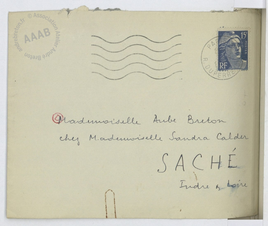 AAAB
15
RF
Mademoiselle Aube Breton
chez Mademoiselle Sandra Calder
SACHÉ
Indre & Loire